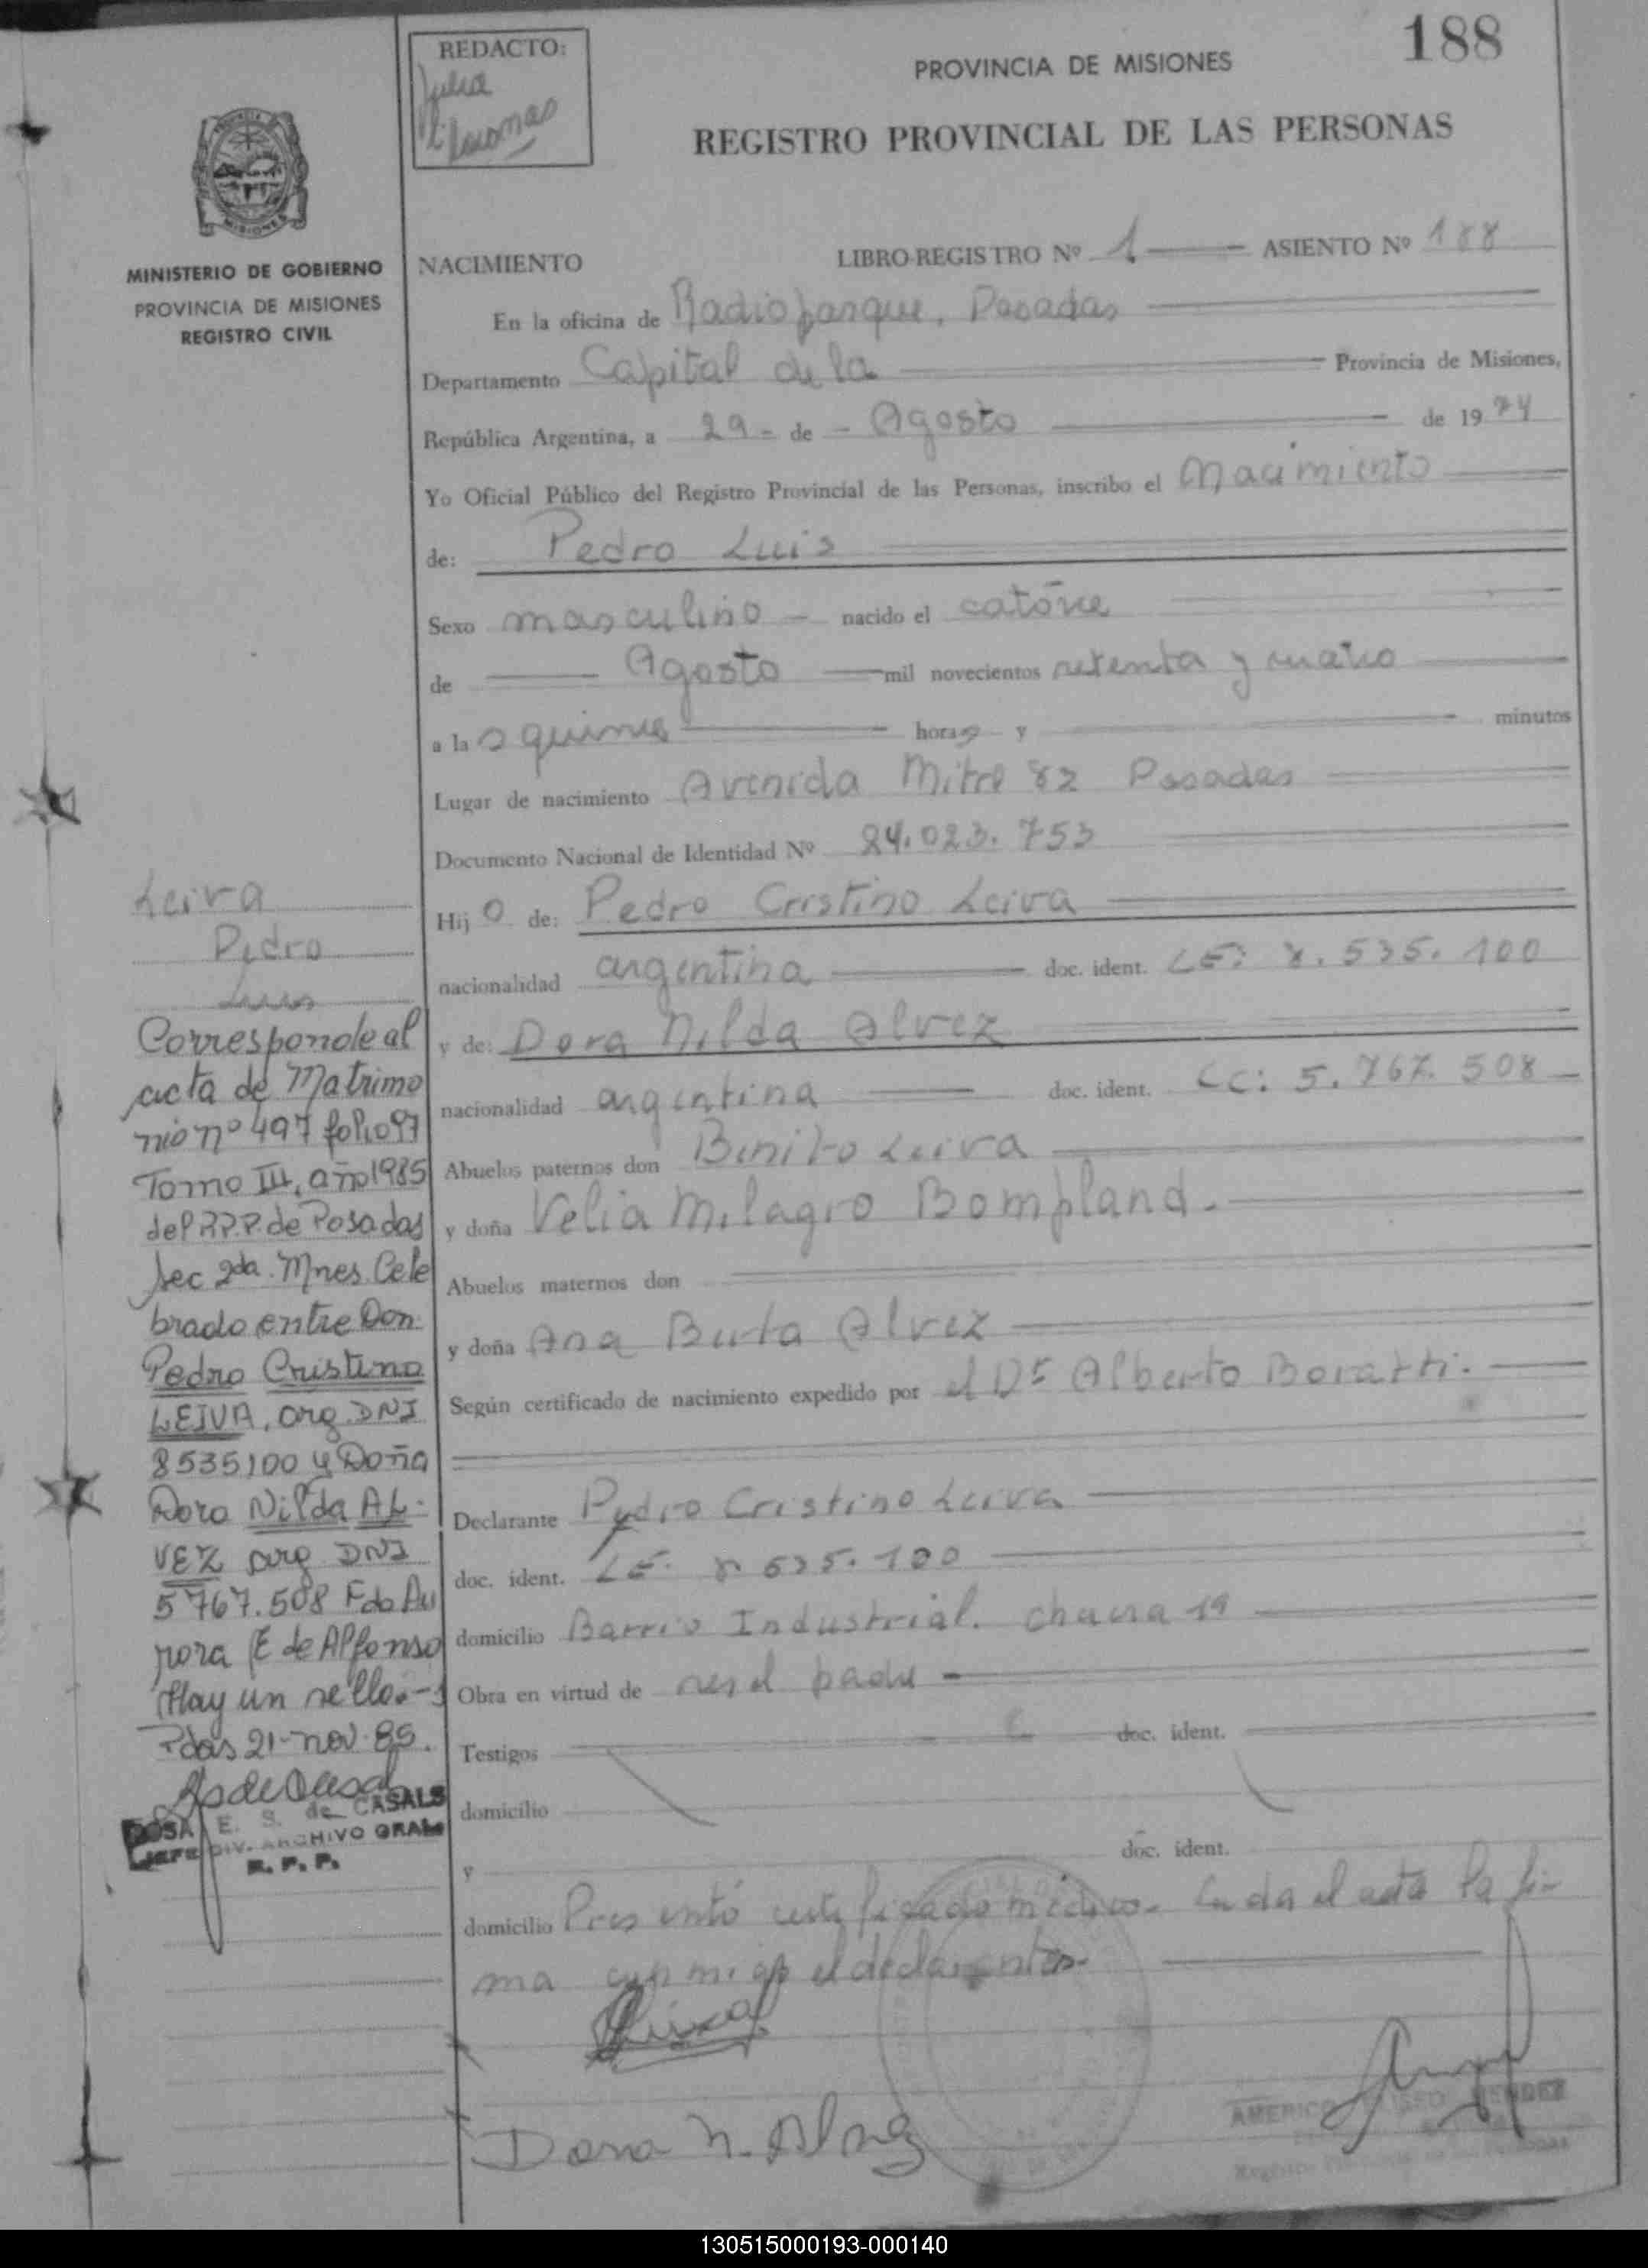 188
REDACTO:
Julia
PROVINCIA DE MISIONES
REGISTRO PROVINCIAL DE LAS PERSONAS
MISIONES
MINISTERIO DE GOBIERNO
PROVINCIA DE MISIONES
REGISTRO CIVIL
NACIMIENTO LIBRO-REGISTRO Nº 1 ASIENTO Nº 188
En la oficina de Radioparque, Posadas
Departamento Capital de la Provincia de Misiones,
República Argentina, a 29 - de - Agosto de 1974
Yo Oficial Público del Registro Provincial de las Personas, inscribo el Nacimiento
de: Pedro Luis
Sexo masculino - nacido el catorce
de Agosto mil novecientos setenta y cuatro
a las quince horas y minutos
Lugar de nacimiento Avenida Mitre 82 Posadas
Documento Nacional de Identidad Nº 24.023.753
Hijo de: Pedro Cristino Leiva
nacionalidad argentina doc. ident. LE: 8.535.100
y de: Dora Nilda Alvez
nacionalidad argentina doc. ident. LC: 5.767.508
Abuelos paternos don Benito Leiva
y doña Velia Milagro Bompland.
Abuelos maternos don
y doña Ana Berta Alvez
Según certificado de nacimiento expedido por el Dr Alberto Boratti.
Declarante Pedro Cristino Leiva
doc. ident. LE. 8.535.100
domicilio Barrio Industrial. chacra 19
Obra en virtud de ser el padre
Testigos doc. ident.
domicilio
y doc. ident.
domicilio Presentó certificado médico. Leida el acta la fir
ma conmigo el declarante.
Dora N. Alvez
AMERICO MENDEZ
Leiva
Pedro
Luis
Corresponde al
acta de Matrimo
nio nº 497 folio 97
Tomo III, año 1985
del R.P.P. de Posadas
Sec 2da. Mnes. Cele
brado entre Don.
Pedro Cristino
LEIVA, arg. DNI
8535100 y Doña
Dora Nilda AL-
VEZ arg DNI
5767.508 Fdo Au
rora E de Alfonso
Hay un sello.-
Pdas 21-nov-85.
ROSA E. S. de CASALS
JEFE DIV. ARCHIVO GRAL
R. P. P.
130515000193-000140